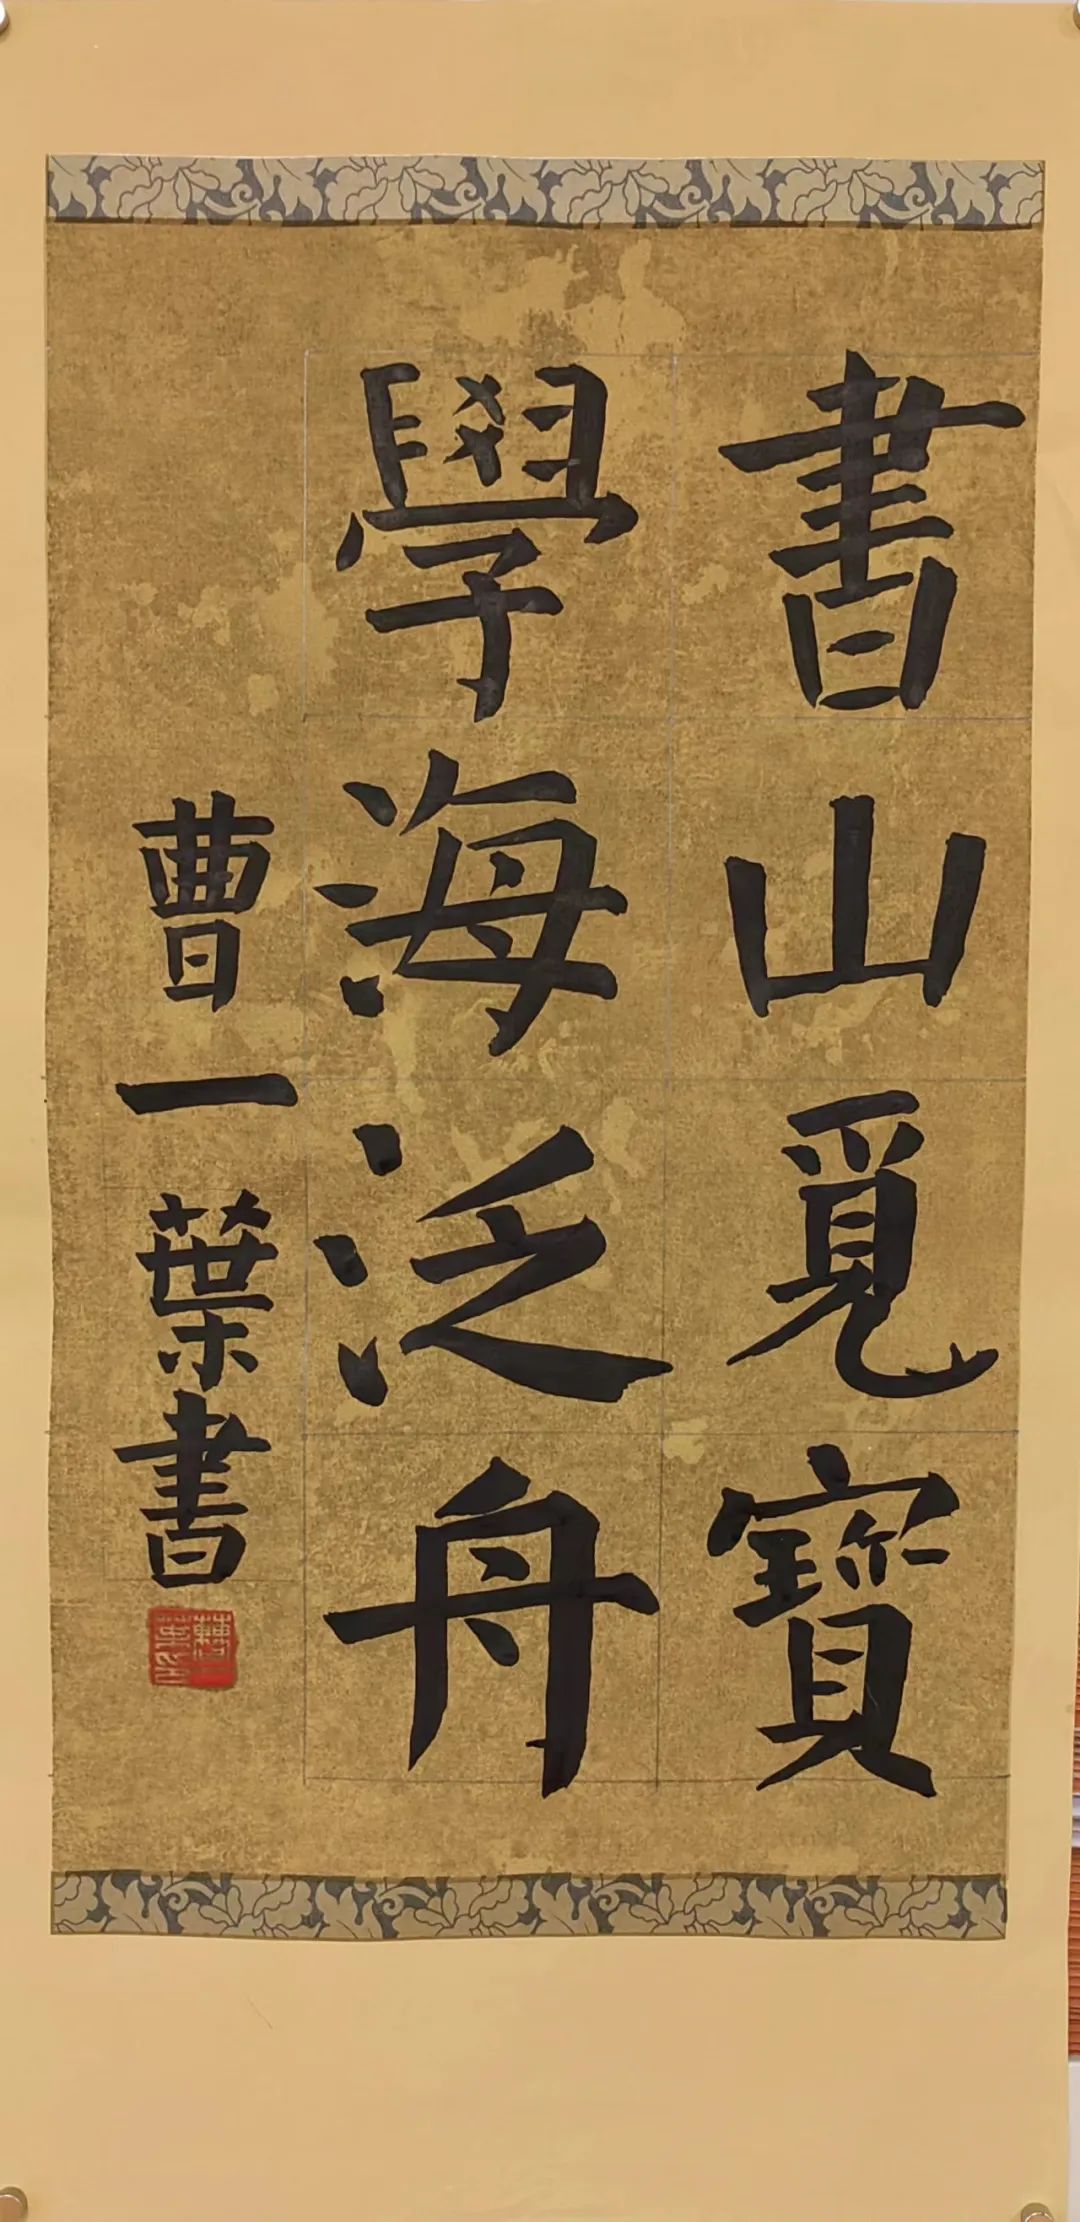 書山覓寶
學海泛舟
曹一葉書